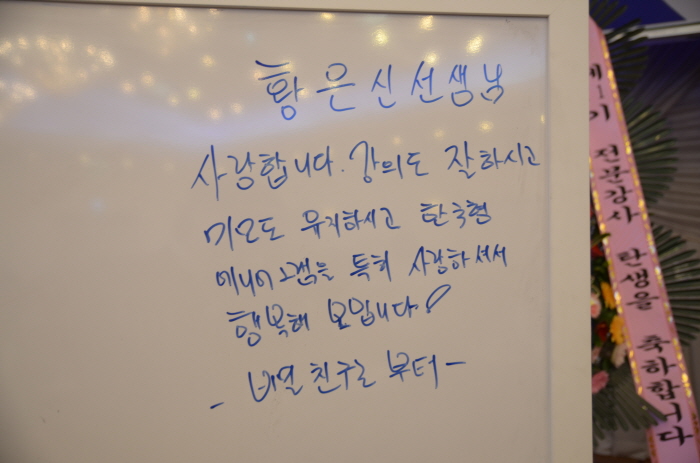 황은신선생님
사랑합니다. 강의도 잘하시고
미모도 유지하시고 한국형
에니어그램을 특히 사랑하셔서
행복해 보입니다!
- 비밀친구로 부터 -
기 전문강사 탄생을 축하합니다